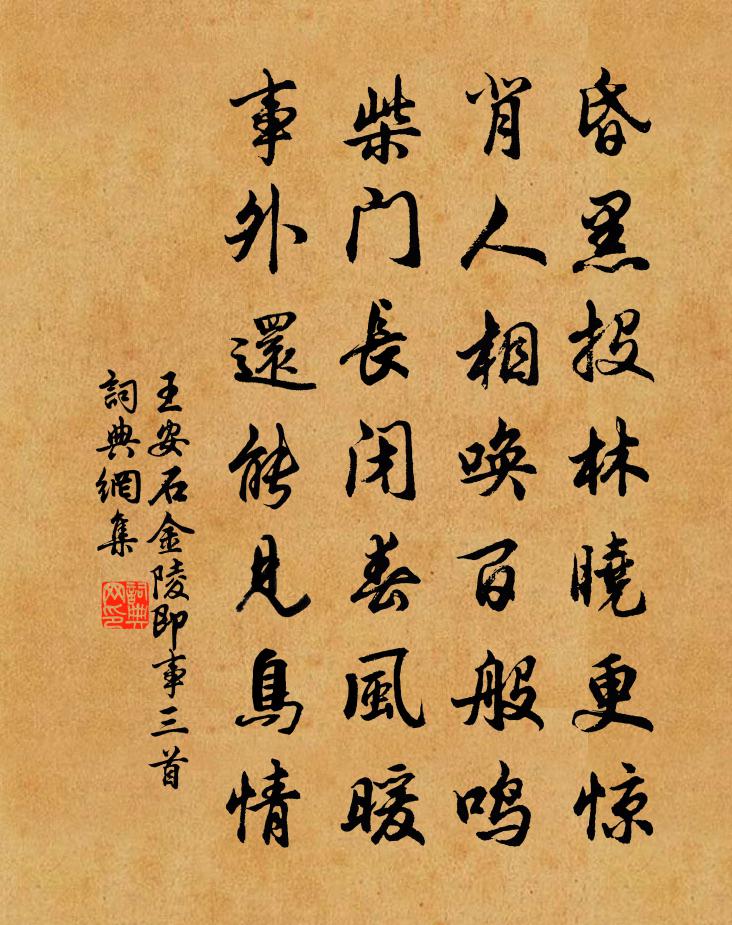 昏黑投林曉更惊
背人相唤百般鸣
柴门長闭春風暖
事外還能見鳥情
王安石金陵即事三首
詞典網集
詞典網印